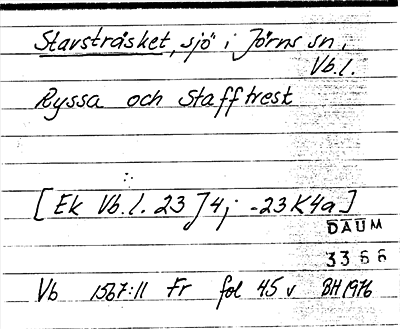 Stavsträsket, sjö i Jörns sn,
Vb.l.
Ryssa och Stafftrest
[Ek Vb.l. 23 J4j -23K4a]
DAUM
3366
Vb 1567:11 Fr fol 45 v BH 1976